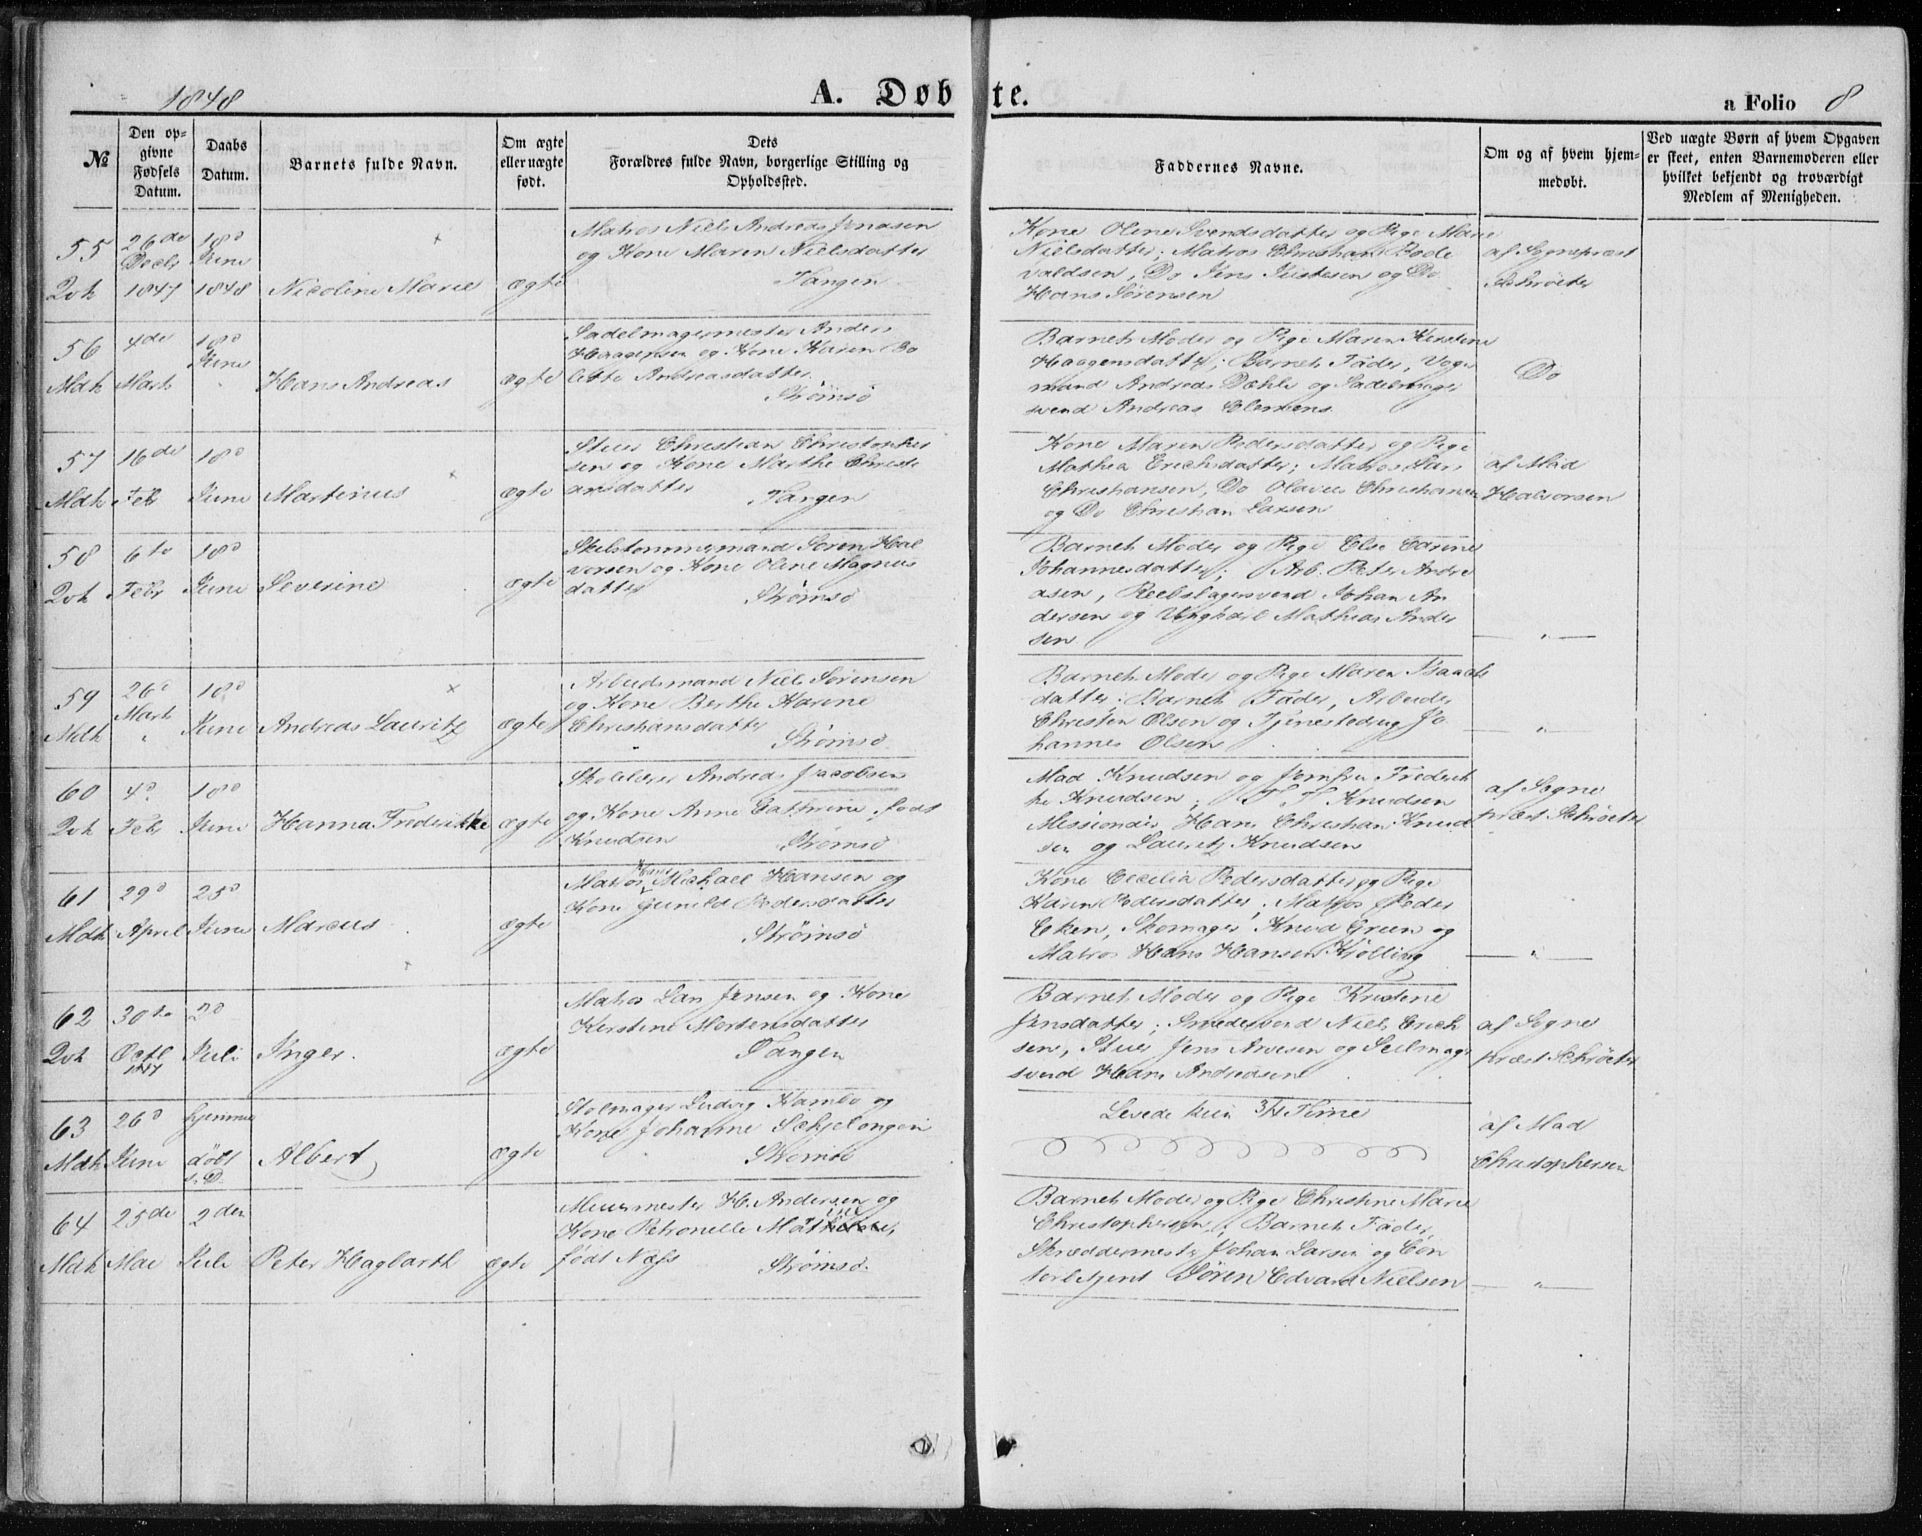 1848
A. Døbte.
a Folio 8
№
Den op-
givne
Fødsels
Datum.
Daabs
Datum.
Barnets fulde Navn.
Om ægte
eller uægte
født.
Dets
Forældres fulde Navn, borgerlige Stilling og
Opholdssted.
Faddernes Navne.
Om og af hvem hjem-
medøbt.
Ved uægte Børn af hvem Opgaven
er skeet, enten Barnemoderen eller
hvilket bekjendt og troværdigt
Medlem af Menigheden.
55
Qvk
26de
Decbr
1847
18d
Juni
1848
Nicoline Marie
ægte
Matros Niels Andreas Jonasen
og Kone Maren Nielsdatter
Tangen
Kone Olene Svendsdatter og Pige Marie
Nielsdatter; Matros Christian Bode
valdsen, Do Jens Justesen og Do
Hans Sørensen
af Sognepræst
Schrøeter
56
Mdk
4de
Marts
18d
Juni
Hans Andreas
ægte
Sadelmagermester Anders
Haagensen og Kone Karen Bo
lette Andreasdatter
Strømsö
Barnets Moder og Pige Maren Kirstine
Haagensdatter; Barnets Fader, Vogn
mand Andreas Dæhle og Sadelmager
svend Andreas Clemens
Do
57
Mdk
16de
Febr
18d
Juni
Martinus
ægte
Stuer Christian Christopher
sen og Kone Marthe Christi
ansdatter
Tangen
Kone Maren Pedersdatter og Pige
Mathea Erichsdatter; Matros Lars
Christiansen, Do Olaves Christiansen
og Do Christian Larsen
af Mad
Halvorsen
58
Qvk
6te
Febr
18d
Juni
Severine
ægte
Skibstømmermand Søren Hal
vorsen og Kone Olene Magnus
datter
Strømsö
Barnets Moder og Pige Else Carine
Johannesdatter; Arb. Peter Andre
asen, Reebslagersvend Johan An
dersen og Ungkarl Mathias Ander
sen
— " —
59
Mdk
26d
Marts
"
18d
Juni
Andreas Lauritz
ægte
Arbeidsmand Niels Sørensen
og Kone Berthe Karine
Christiansdatter
Strømsö
Barnets Moder og Pige Maren Isaachs
datter; Barnets Fader, Arbeider
Christen Olsen og Tjenestedreng Jo
hannes Olsen
— " —
60
Qvk
4d.
Febr
18d
Juni
Hanna Frederikke
ægte
Skolelærer Andreas Jacobsen
og Kone Anne Cathrine, født
Knudsen
Strømsö
Mad Knudsen og Jomfru Frederik
ke Knudsen; T T Knudsen
Missionær Hans Christian Knud
sen og Lauritz Knudsen
af Sogne
præst Schrøeter
61
Mdk
29d
April
25d
Juni
Marcus
ægte
Matros Hans Michael Hansen og
Kone Gunild Pedersdatter
Strømsö
Kone Cecilia Pedersdatter og Pige
Karen Pedersdatter; Matros Peder
Eken, Skomager Knud Green og
Matros Hans Hansen Kjölling
— " —
62
Qvk
30te
Octb
1847
2d
Juli
Inger.
ægte
Matros Lars Jensen og Kone
Kirstine Mortensdatter
Tangen
Barnets Moder og Pige Kristine
Jensdatter; Smedesvend Niels Erich
sen, Stuer Jens Arvesen og Seilmager
svend Hans Andreasen
af Sogne
præst Schrøeter
63
Mdk
26d
Juni
hjemme
døbt
s. D.
Albert
ægte
Stolmager Ludvig Kambo og
Kone Johanne
Strømsö
Levede kun 3/4 Time
af Mad
Christophersen
64
Mdk
25de
Mai
2den
Juli
Peter Hagbarth
ægte
Muurmester H. Andersen og
Kone Petronelle
født Næss
Strømsö.
Barnets Moder og Pige Christine Marie
Christophersen, Barnets Fader,
Skræddermester Johan Larsen og Con
torbetjent Sören Edvard Nielsen
— " —